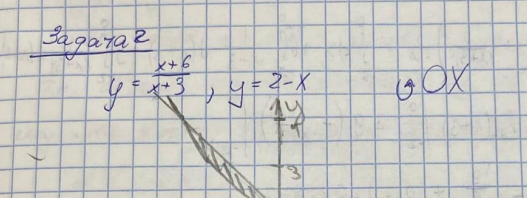 Задача 2
y = x+6/x+3 , y = 2-x OX
y
4
3